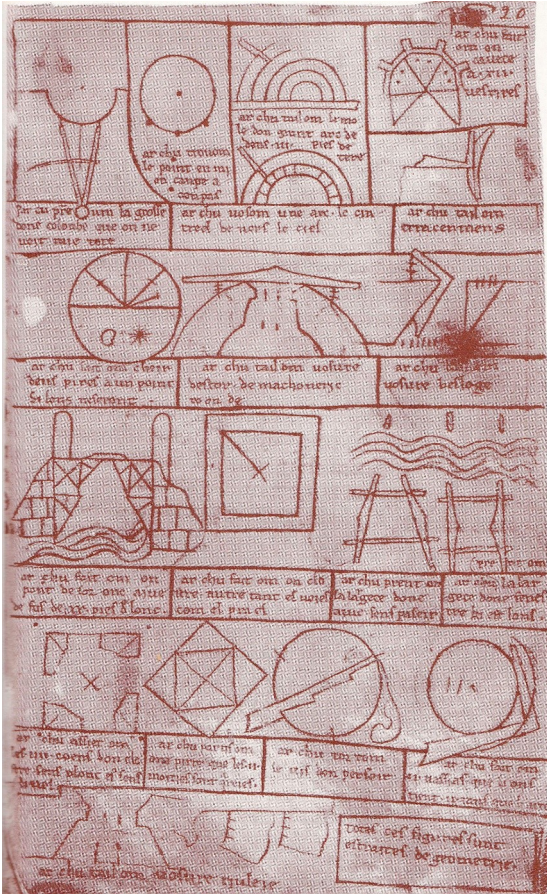 20
ar chu fait
om on
cavece
a .xii.
vesrires
ar chu trovom
le point en mi
on canpe a
conpas
ar chu tail om le mo
le don grant arc de
dens .iii. pies de
tere
Par cu pre om la grosse
done colonbe que on ne
voit mie tote
ar chu vosom une arc le cin
treel devers le ciel
ar chu tail om
erracemens
ar chu fait om cheir
deus pires a un point
si lons ne seront
ar chu tail om vosure
destor de machonerie
roonde
ar chu tail om
vosure besloge
pre ent om
ar chu fait om on
pont desor one aiue
de fus de .xx. pies de lonc
ar chu fait om on clo
stre autretant es voies
com el prael
ar chu prent om
la largece done
aiue sens paseir
ar chu la lar
gece done fenes
tre ki est lons
ar chu assiet om
les .iiii. coens don clo
stre sens plonc et sens
livel
ar chu partis om
one pirre que les .ii.
moities sont quareies
ar chu torn om
le vis don persoir
ar chu fait om
.ii. vassias que li ons
tient .ii. tans que li atre
ar chu tail om vosure riulee
Totes ces figures sunt
estraites de geometrie.